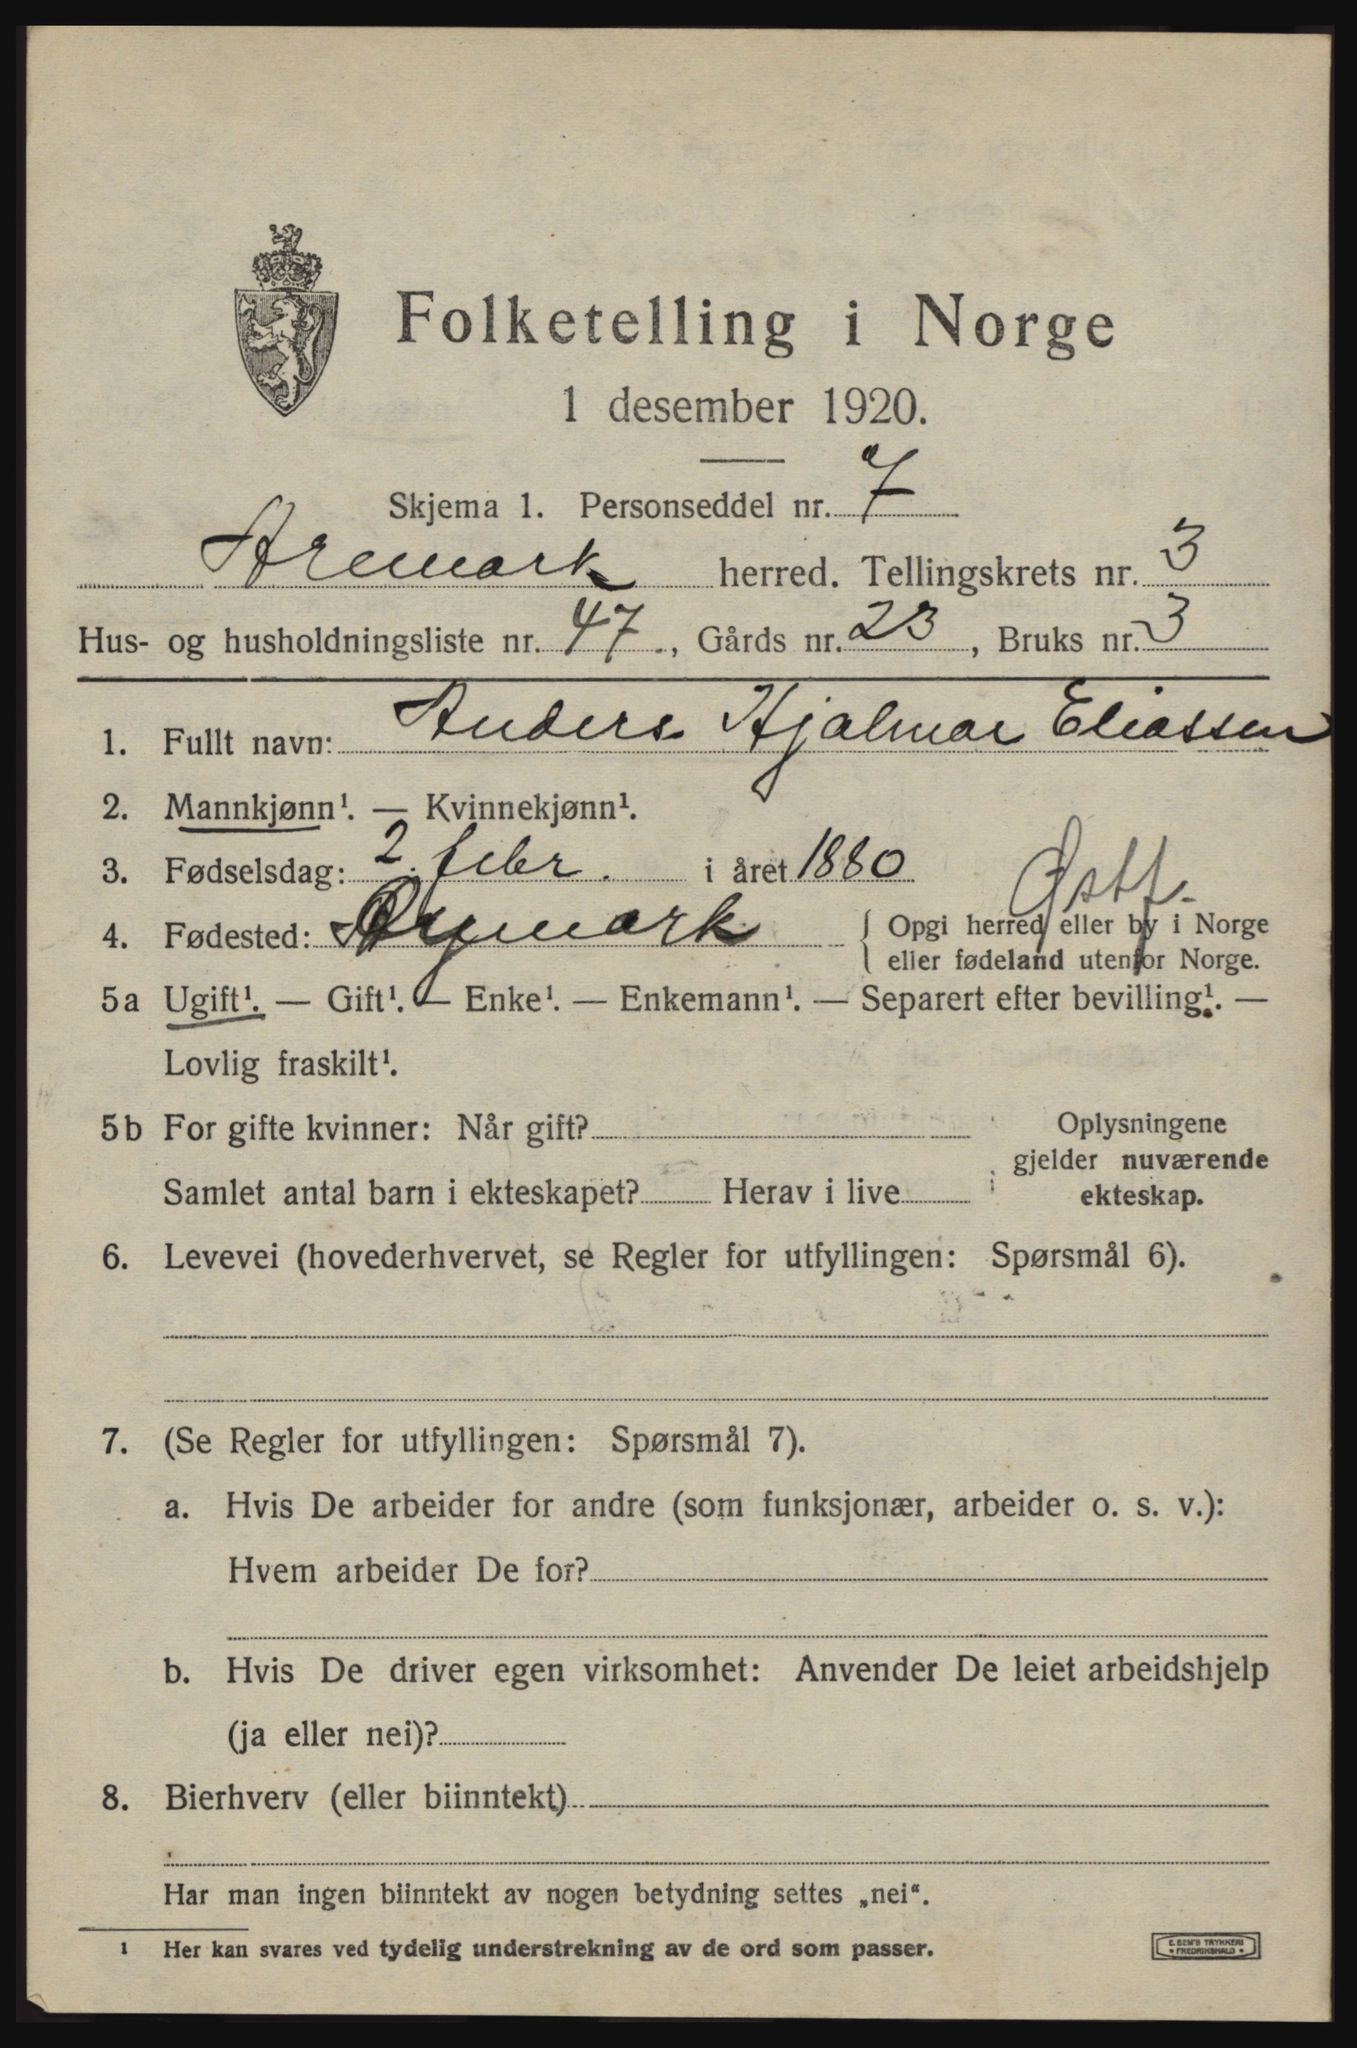 Folketelling i Norge
1 desember 1920.
Skjema 1. Personseddel nr. 7
Aremark herred. Tellingskrets nr. 3
Hus- og husholdningsliste nr. 47, Gårds nr. 23, Bruks nr. 3
1. Fullt navn: Anders Hjalmar Eliassen
2. Mannkjønn¹. — Kvinnekjønn¹.
3. Fødselsdag: 2. febr. i året 1880
Østf.
4. Fødested: Øymark { Opgi herred eller by i Norge
eller fødeland utenfor Norge.
5a Ugift¹. — Gift¹. — Enke¹. — Enkemann¹. — Separert efter bevilling¹. —
Lovlig fraskilt¹.
5b For gifte kvinner: Når gift?
Samlet antal barn i ekteskapet? Herav i live
Oplysningene
gjelder nuværende
ekteskap.
6. Levevei (hovederhvervet, se Regler for utfyllingen: Spørsmål 6).
7. (Se Regler for utfyllingen: Spørsmål 7).
a. Hvis De arbeider for andre (som funksjonær, arbeider o. s. v.):
Hvem arbeider De for?
b. Hvis De driver egen virksomhet: Anvender De leiet arbeidshjelp
(ja eller nei)?
8. Bierhverv (eller biinntekt)
Har man ingen biinntekt av nogen betydning settes „nei“.
¹ Her kan svares ved tydelig understrekning av de ord som passer.
E. SEM'S TRYKKERI
• FREDRIKSHALD •